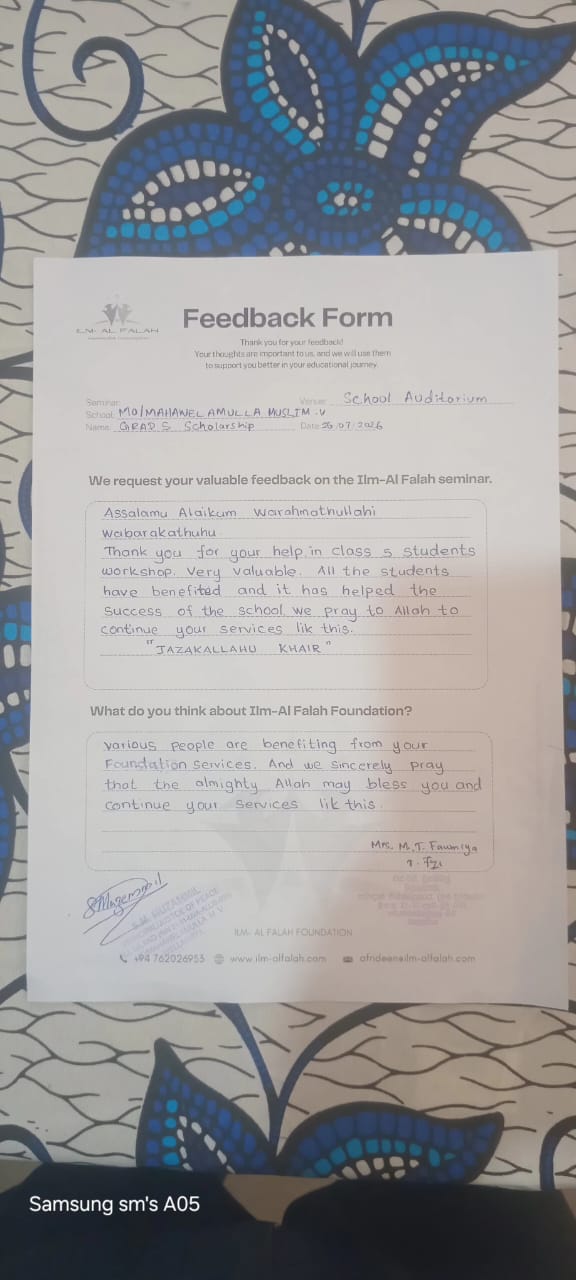 ILM- AL FALAH
Feedback Form
Thank you for your feedback!
Your thoughts are important to us, and we will use them
to support you better in your educational journey.
Seminar:
Venue: School Auditorium
School: MO/MAHANELAMULLA MUSLIM .V
Name: GRAD 5 Scholarship
Date: 26/07/2026
We request your valuable feedback on the Ilm-Al Falah seminar.
Assalamu Alaikum warahmathullahi
wabarakathuhu
Thank you for your help in class 5 students
workshop. Very valuable. All the students
have benefited and it has helped the
success of the school. we pray to Allah to
continue your services lik this.
"JAZAKALLAHU KHAIR"
What do you think about Ilm-Al Falah Foundation?
various people are benefiting from your
Foundation services. And we sincerely pray
that the almighty Allah may bless you and
continue your services lik this.
Mrs. M.T. Fawmiya
ILM- AL FALAH FOUNDATION
+94 762026953 www.ilm-alfalah.com afrideen@ilm-alfalah.com
Samsung sm's A05